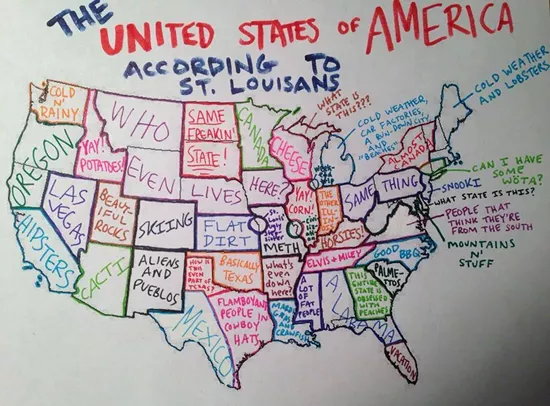 THE
UNITED STATES OF AMERICA
ACCORDING TO
ST. LOUISANS
COLD
N'
RAINY
OREGON
YAY!
POTATOES!
WHO
EVEN
LIVES
HERE?
SAME
FREAKIN'
STATE!
CANADA
CHEESE
WHAT
STATE IS
THIS???
COLD WEATHER,
CAR FACTORIES,
A RUN-DOWN CITY
AND
"BEACHES"
COLD WEATHER
AND LOBSTERS
ALMOST
CANADA
CAN I HAVE
SOME
WÖTA?
SNOOKI
WHAT STATE IS THIS?
PEOPLE THAT
THINK THEY'RE
FROM THE SOUTH
MOUNTAINS
N'
STUFF
HIPSTERS
LAS
VEGAS
BEAUT-
IFUL
ROCKS
SKIING
FLAT
DIRT
METH
YAY!
CORN!
THE
OTHER
ILL-
INO-
IS
SAME
THING
HORSIES!
ELVIS + MILEY
GOOD
BBQ
PALME-
TTOS
CACTI
ALIENS
AND
PUEBLOS
HOW IS
THIS
EVEN
PART OF
TEXAS?
BASICALLY
TEXAS
WHAT'S
EVEN
DOWN
HERE?
MEXICO
FLAMBOYANT
PEOPLE IN
COWBOY
HATS
MARDI
GRAS
AND
CRAWFISH
A
LOT
OF
FAT
PEOPLE
ALABAMA
THIS
ENTIRE
STATE IS
OBSESSED
WITH
PEACHES
VACATION